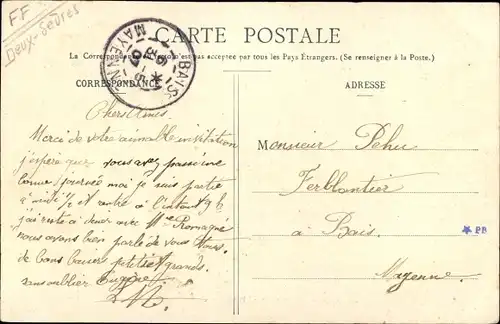 FF
Deux-Sèvres
CARTE POSTALE
La Correspondance n'est pas acceptée par tous les Pays Étrangers. (Se renseigner à la Poste.)
CORRESPONDANCE
BAIS
MAYENNE
ADRESSE
Chers Amis
Merci de votre aimable invitation
j'espère que vous avez passé une
bonne journée moi je suis partie
à midi ½ et rentré à
j'ai resté a diner avec Mme Romagné
nous avons bien parlé de vous tous.
de bons baisers petits et grands.
sans oublier Eugène
Monsieur Pehu
Ferblantier
à Bais
Mayenne
PB